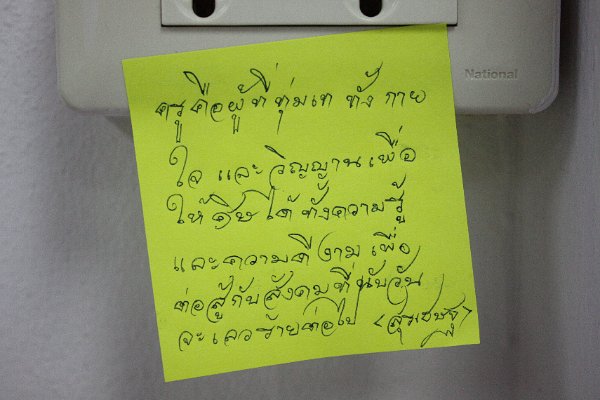 National
ครูคือผู้ที่ทุ่มเท ทั้ง กาย
ใจ และ วิญญาน เพื่อ
ให้ศิษได้ทั้งความรู้
และความดีงาม เพื่อ
ต่อสู้กับสังคมที่นับวัน
จะเลวร้ายต่อไป